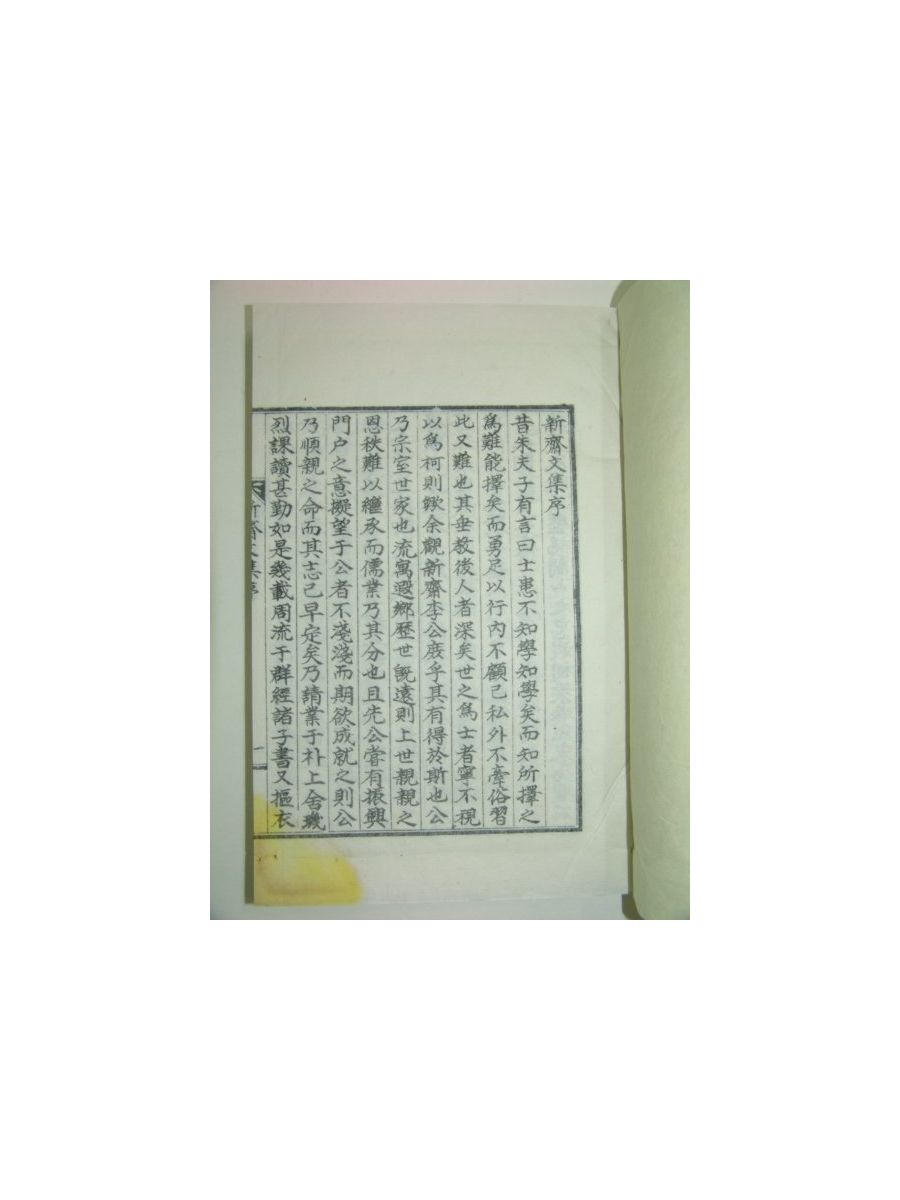 新齋文集序
昔朱夫子有言曰士患不知學知學矣而知所擇之
爲難能擇矣而勇足以行內不顧已私外不牽俗習
此又難也其垂教後人者深矣世之爲士者寧不視
以爲柯則歟余觀新齋李公庶乎其有得於斯也公
乃宗室世家也流寓遐鄕歷世旣遠則上世親親之
恩秩難以繼承而儒業乃其分也且先公嘗有振興
門户之意擬望于公者不淺淺而期欲成就之則公
乃順親之命而其志已早定矣乃請業于朴上舍璣
烈課讀甚勤如是幾載周流于群經諸子書又摳衣
新齋文集序
一